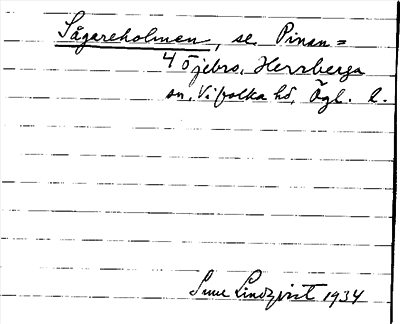 Sågareholmen, se Pinan=
4 öjebro, Herrberga
sn, Vifolka hd, Ögl. l.
Sune Lindqvist 1934